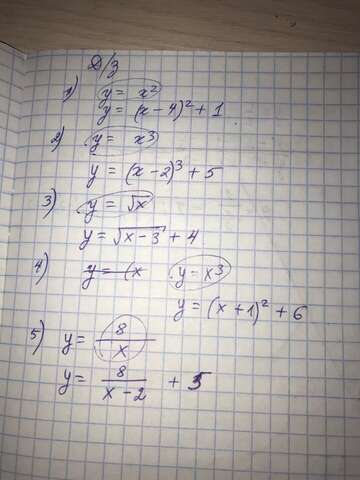 Д/з
1) y = x²
y = (x - 4)² + 1
2) y = x³
y = (x - 2)³ + 5
3) y = √x
y = √x - 3 + 4
4) y = (x y = x³
y = (x + 1)² + 6
5) y = 8/x
y = 8/(x - 2) + 5